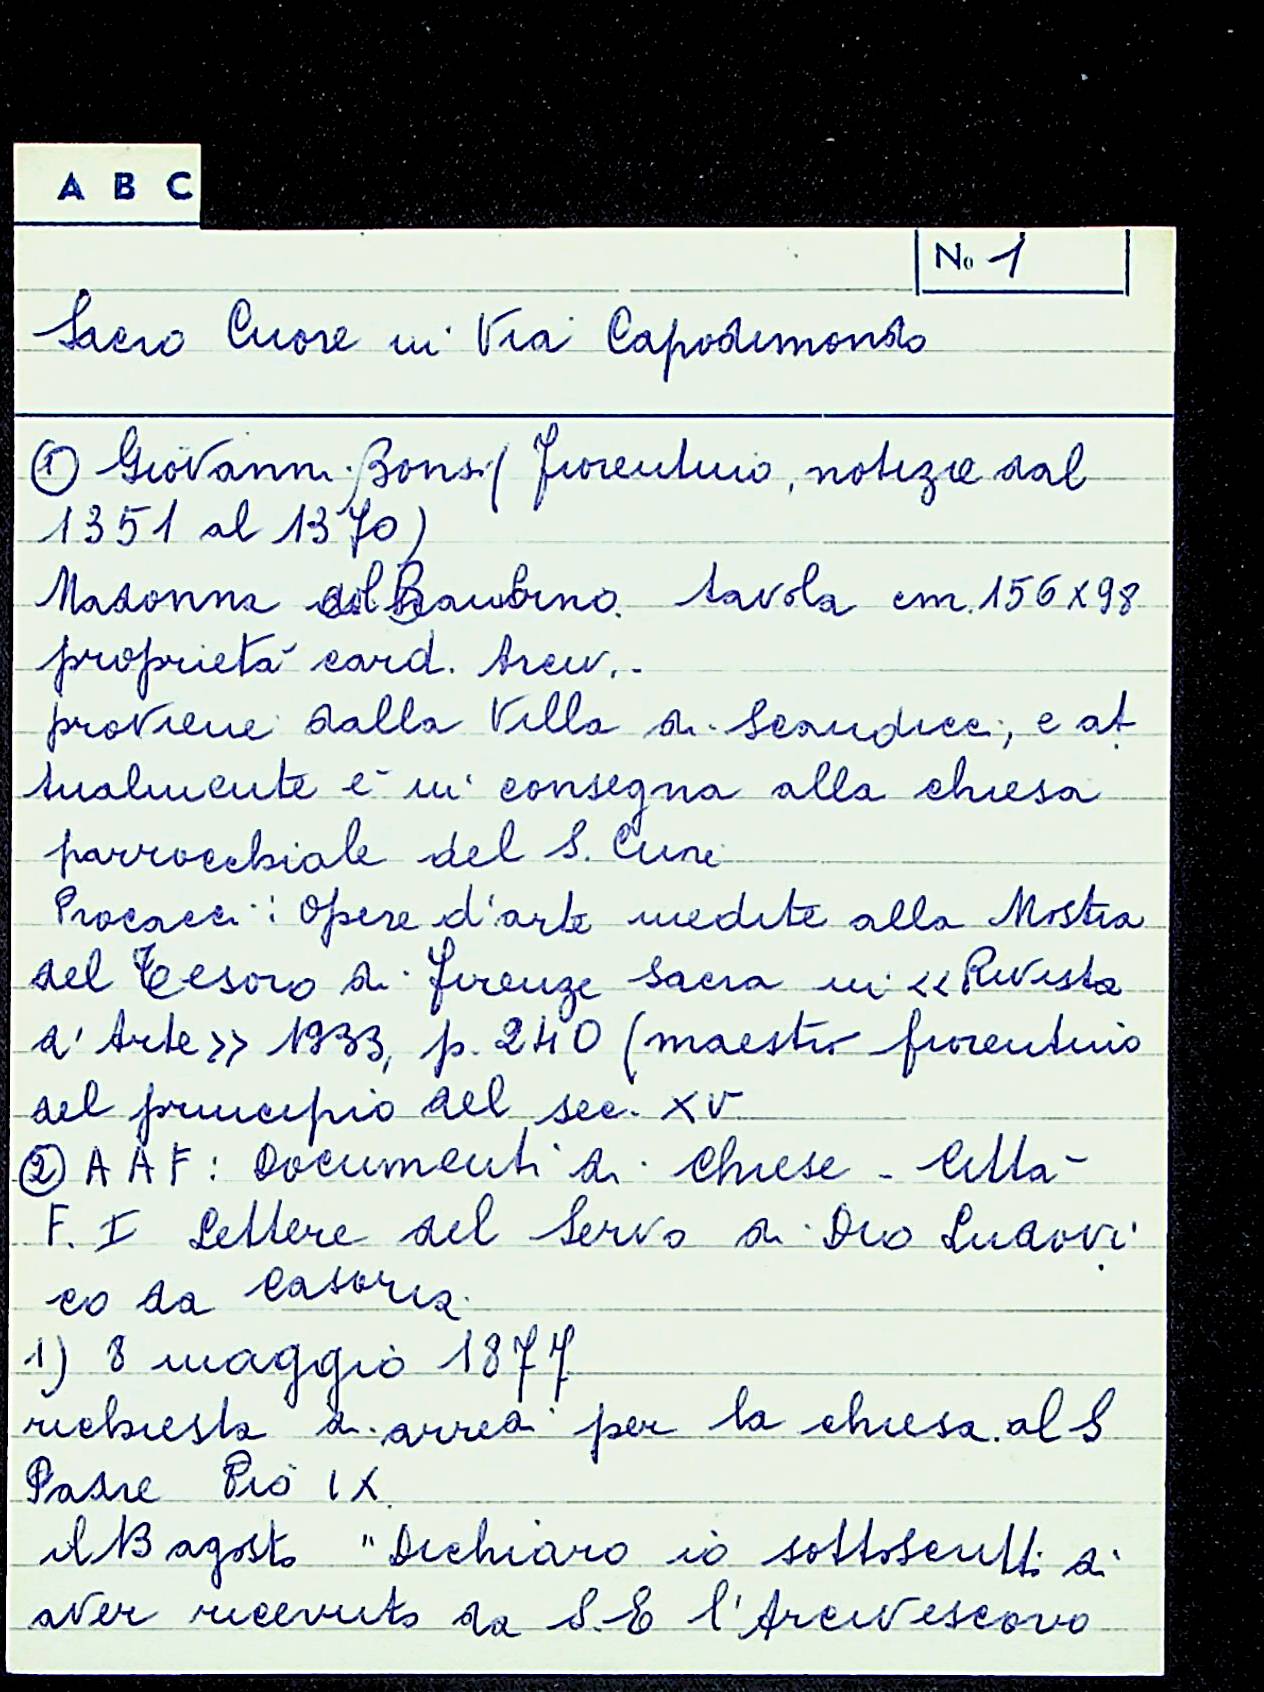 A B C
No 1
Sacro Cuore in Via Capodimondo
① Giovanni Bonsi (fiorentino, notizie dal
1351 al 1370)
Madonna col Bambino. tavola cm. 156x98
proprietà card. Arciv..
proviene dalla Villa di Scandicci, e at
tualmente è in consegna alla chiesa
parrocchiale del S. Cuore
Procacci: Opere d'arte inedite alla Mostra
del Tesoro di Firenze Sacra in «Rivista
d'Arte» 1933, p. 240 (maestro fiorentino
del principio del sec. XV
② A A F: Documenti di Chiese - Città
F. I Lettere del Servo di Dio Ludovi
co da Casoria.
1) 8 maggio 1877
richiesta di arredi per la chiesa al S
Padre Pio IX.
il 13 agosto "Dichiaro io sottoscritto di
aver ricevuto da S.E l'Arcivescovo